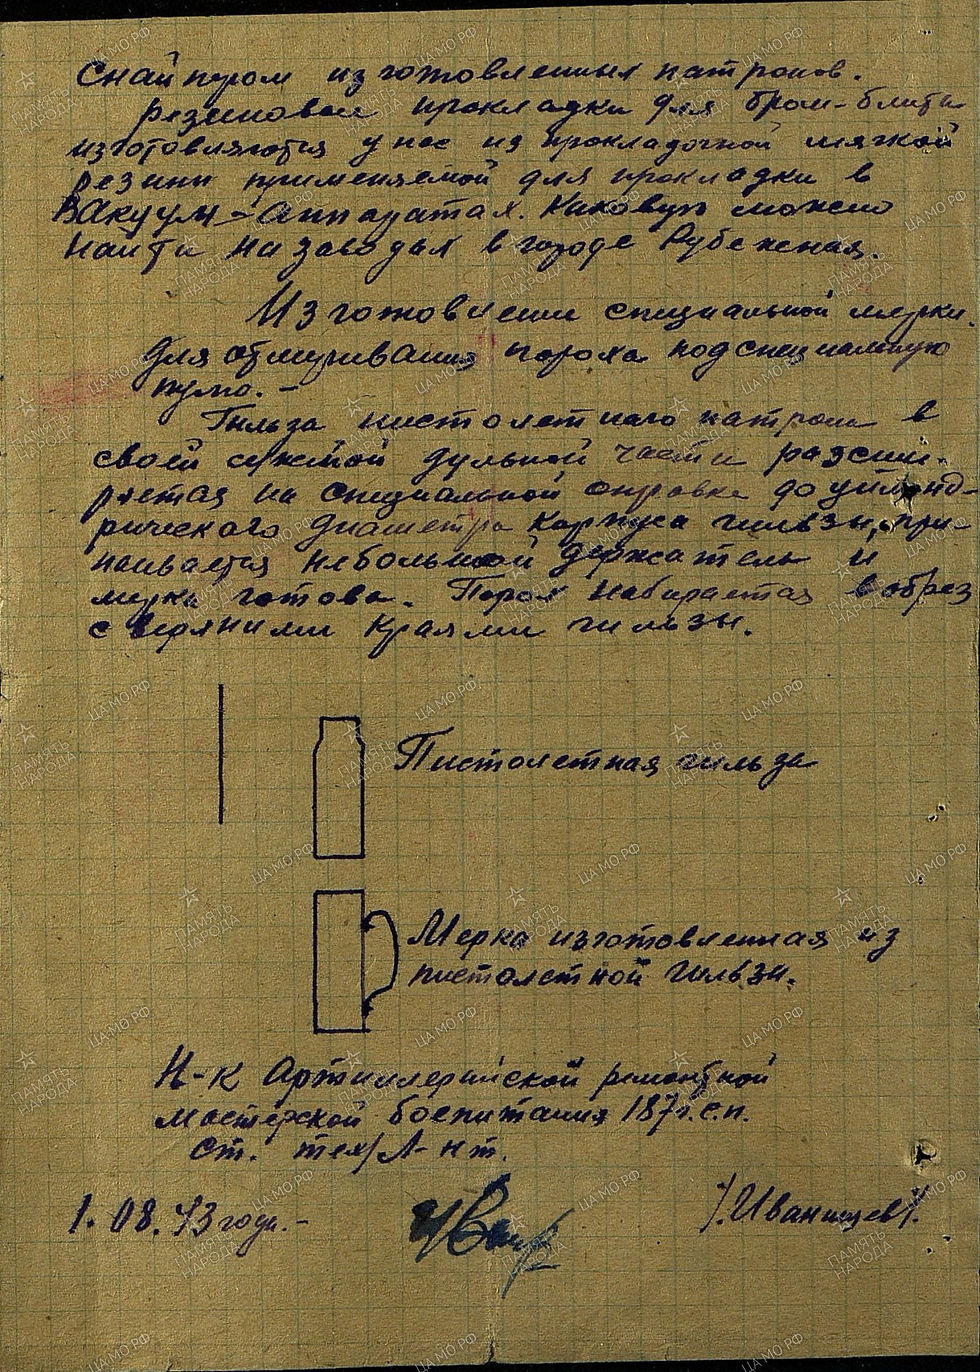 снайпером изготовленных патронов.
Резиновая прокладка для брам-блита
изготовляются у нас из прокладочной мягкой
резины применяемой для прокладки в
Вакуум-аппаратах. Каковую можно
найти на заводах в городе Рубежная.
Изготовление специальной мерки
для отмеривания пороха под специальную
пулю. -
Гильза пистолетного патрона в
своей сжатой дульной части разши-
ряется на специальной оправке до цилинд-
рического диаметра корпуса гильзы, при-
паивается небольшой держатель и
мерка готова. Порох набирается в обрез
с верхними краями гильзы.
Пистолетная гильза
Мерка изготовленная из
пистолетной гильзы.
Н-к Артиллерийской ремонтной
мастерской боепитания 187г.с.п.
Ст. тех/Л-нт.
1.08.43 года.- /.Иванищев/.
ПАМЯТЬ НАРОДА
ЦА МО РФ